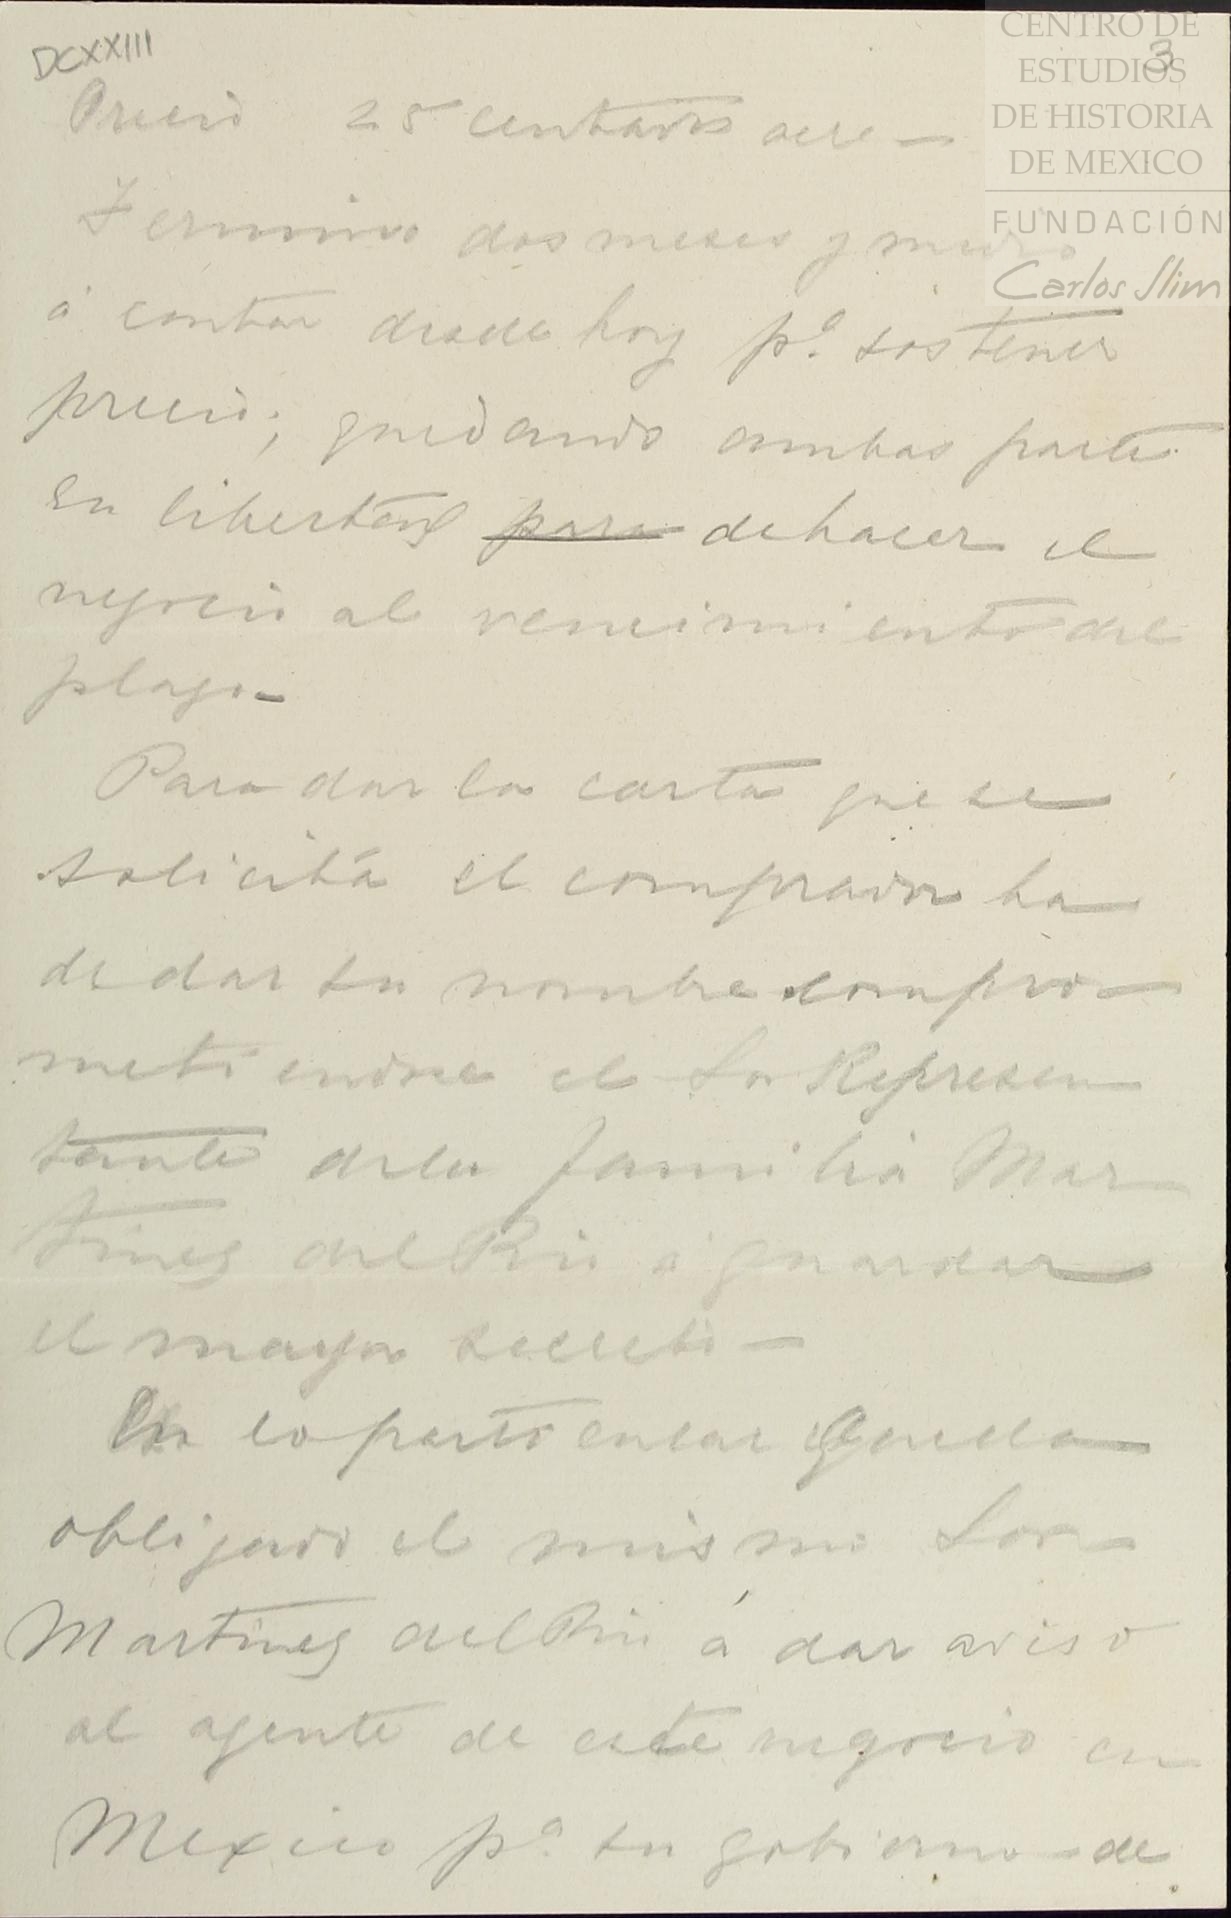 DCXXIII
3
CENTRO DE
ESTUDIOS
DE HISTORIA
DE MEXICO
FUNDACIÓN
Carlos Slim
Precio 25 centavos acre —
Termino dos meses y medio
á contar desde hoy pª. sostener
precio; quedando ambas partes
en libertad para de hacer el
negocio al vencimiento del
plazo —
Para dar la carta que se
solicita el comprador ha
de dar su nombre compro-
metiendose el Sor Represen
tante de la familia Mar
tinez del Rio á guardar
el mayor secreto —
En lo particular queda
obligado el mismo Sor
Martinez del Rio á dar aviso
al agente de este negocio en
Mexico pª. su gobierno de